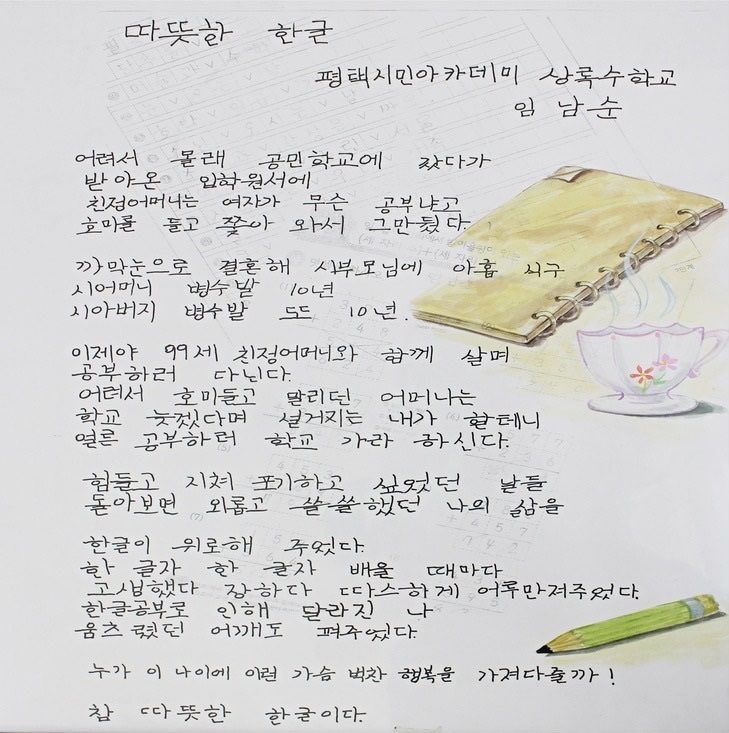 따뜻한 한글
평택시민아카데미 상록수학교
임 남순
어려서 몰래 공민학교에 갔다가
받아온 입학원서에
친정어머니는 여자가 무슨 공부냐고
호미를 들고 쫓아 와서 그만뒀다.
까막눈으로 결혼해 시부모님에 아홉 식구
시어머니 병수발 10년
시아버지 병수발 또드 10년.
이제야 99세 친정어머니와 함께 살며
공부하러 다닌다.
어려서 호미들고 말리던 어머니는
학교 늦겠다며 설거지는 내가 할테니
얼른 공부하러 학교 가라 하신다.
힘들고 지쳐 포기하고 싶었던 날들
돌아보면 외롭고 쓸쓸했던 나의 삶을
한글이 위로해 주었다.
한 글자 한 글자 배울 때마다
고생했다 장하다 따스하게 어루만져주었다.
한글공부로 인해 달라진 나
움츠렸던 어깨도 펴주었다.
누가 이 나이에 이런 가슴 벅찬 행복을 가져다줄까!
참 따뜻한 한글이다.